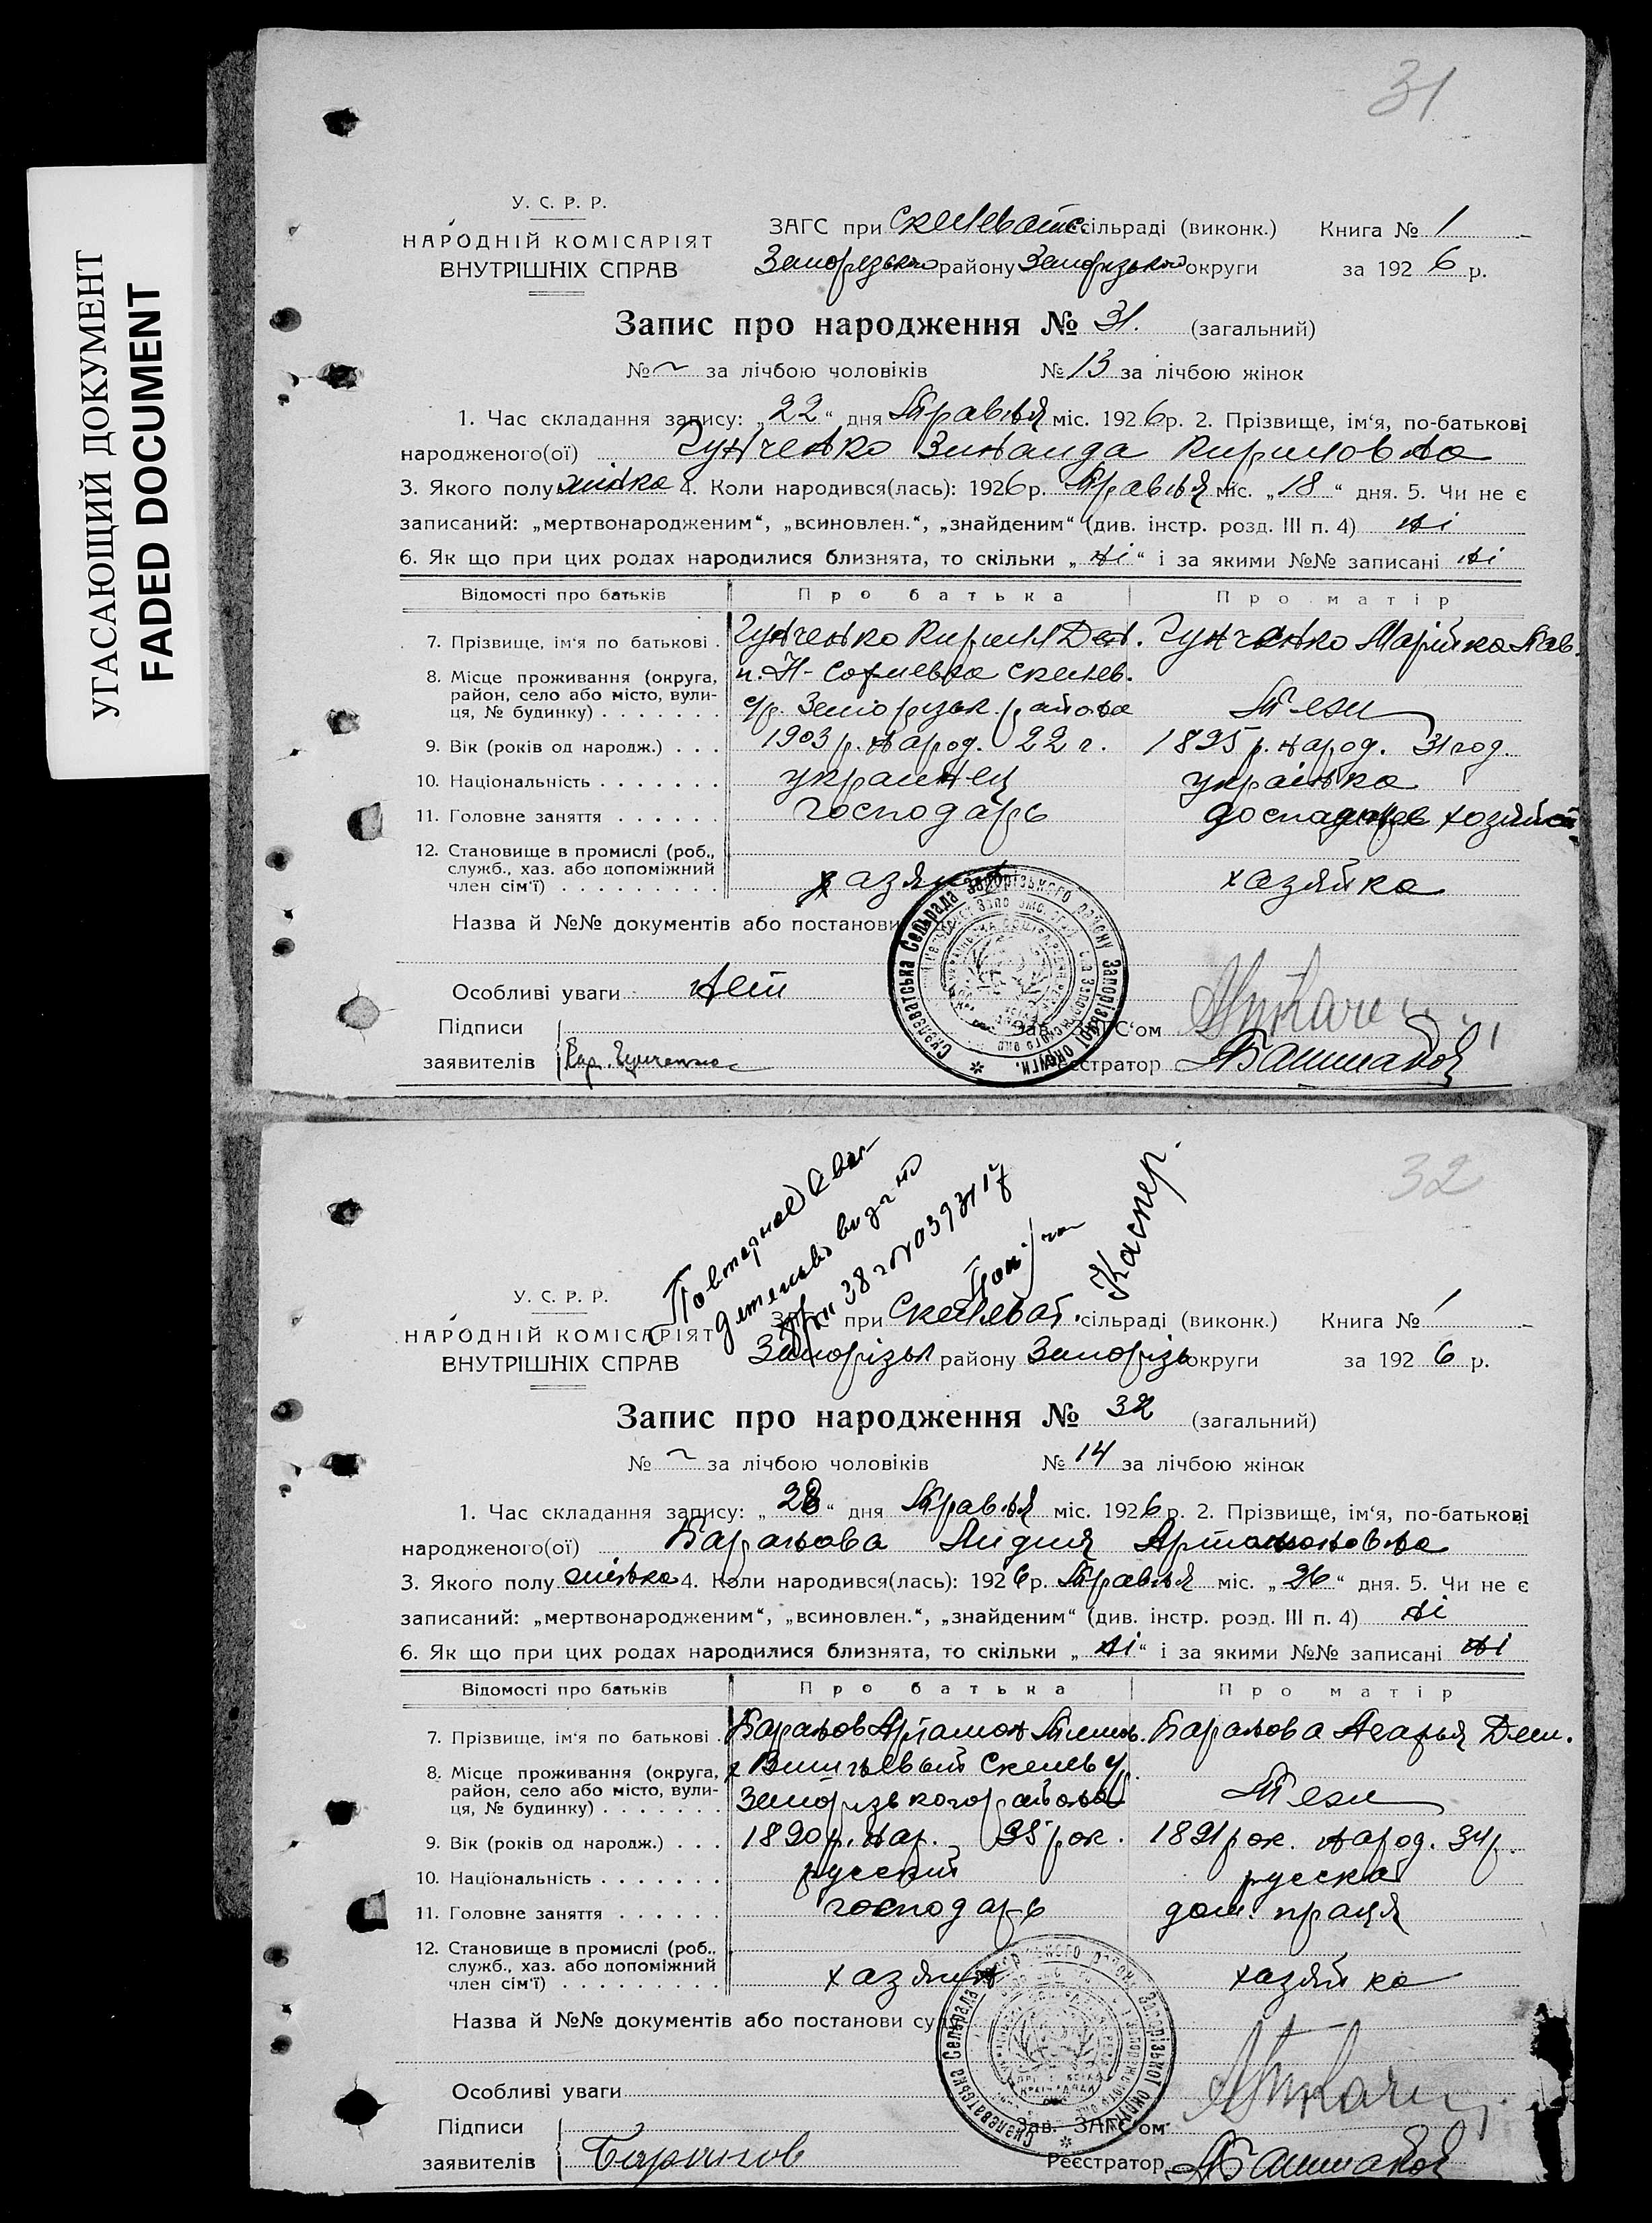 УГАСАЮЩИЙ ДОКУМЕНТ
FADED DOCUMENT
31
У. С. Р. Р.
НАРОДНІЙ КОМІСАРІЯТ
ВНУТРІШНІХ СПРАВ
ЗАГС при Скелеватс. сільраді (виконк.) Книга № 1
Запорізького району Запорізького округи за 1926 р.
Запис про народження № 31. (загальний)
№ ~ за лічбою чоловіків № 13 за лічбою жінок
1. Час складання запису: „22“ дня Травня міс. 1926 р. 2. Прізвище, ім‘я, по-батькові
народженого(ої) Гунченко Зинаида Кириловна
3. Якого полу жінка 4. Коли народився(лась): 1926 р. Травня міс. „18“ дня. 5. Чи не є
записаний: „мертвонародженим“, „всиновлен.“, „знайденим“ (див. інстр. розд. III п. 4) ні
6. Як що при цих родах народилися близнята, то скільки „ні“ і за якими №№ записані ні
Відомості про батьків Про батька Про матір
7. Прізвище, ім‘я по батькові . Гунченко Кирилл Дем. Гунченко Марійка Пав.
8. Місце проживання (округа, район, село або місто, вулиця, № будинку) . . . . . . . п. Н-Софиевка Скелев.
с/р. Запорізьк. района Теж
9. Вік (років од народж.) . . . 1903 р. народ. 22 г. 1895 р. народ. 31 год.
10. Національність . . . . . . . украинец украінка
11. Головне заняття . . . . . . господарь господарев хозяйст
12. Становище в промислі (роб., служб., хаз. або допоміжний член сім‘ї) . . . . . . . . . хазяин хазяйка
Назва й №№ документів або постанови
Особливі уваги Нет
Підписи
заявителів Кир. Гунченко
Зав. ЗАГС‘ом
Реєстратор
Скелеватська Сельрада Запорізького району Запорізької округи.
32
Повторное свидетельство
Каспер.
У. С. Р. Р.
НАРОДНІЙ КОМІСАРІЯТ
ВНУТРІШНІХ СПРАВ
ЗАГС при Скелеват. сільраді (виконк.) Книга № 1
Запорізьк району Запорізь округи за 1926 р.
Запис про народження № 32 (загальний)
№ ~ за лічбою чоловіків № 14 за лічбою жінок
1. Час складання запису: „28“ дня Травня міс. 1926 р. 2. Прізвище, ім‘я, по-батькові
народженого(ої) Баранова Лидия Артамоновна
3. Якого полу жінка 4. Коли народився(лась): 1926 р. Травня міс. „26“ дня. 5. Чи не є
записаний: „мертвонародженим“, „всиновлен.“, „знайденим“ (див. інстр. розд. III п. 4) ні
6. Як що при цих родах народилися близнята, то скільки „ні“ і за якими №№ записані ні
Відомості про батьків Про батька Про матір
7. Прізвище, ім‘я по батькові . Баранов Артамон Баранова Агафья Дем.
8. Місце проживання (округа, район, село або місто, вулиця, № будинку) . . . . . . . х Вишневый Скелев
Запорізького района Теж
9. Вік (років од народж.) . . . 1890 р. нар. 35 рок. 1891 рок. народ. 34 р.
10. Національність . . . . . . . русский русская
11. Головне заняття . . . . . . господарь дом. праця
12. Становище в промислі (роб., служб., хаз. або допоміжний член сім‘ї) . . . . . . . . . хазяин хазяйка
Назва й №№ документів або постанови су
Особливі уваги
Підписи
заявителів Баранов
Зав. ЗАГС‘ом
Реєстратор
Скелеватська Сельрада Запорізького району Запорізької округи.